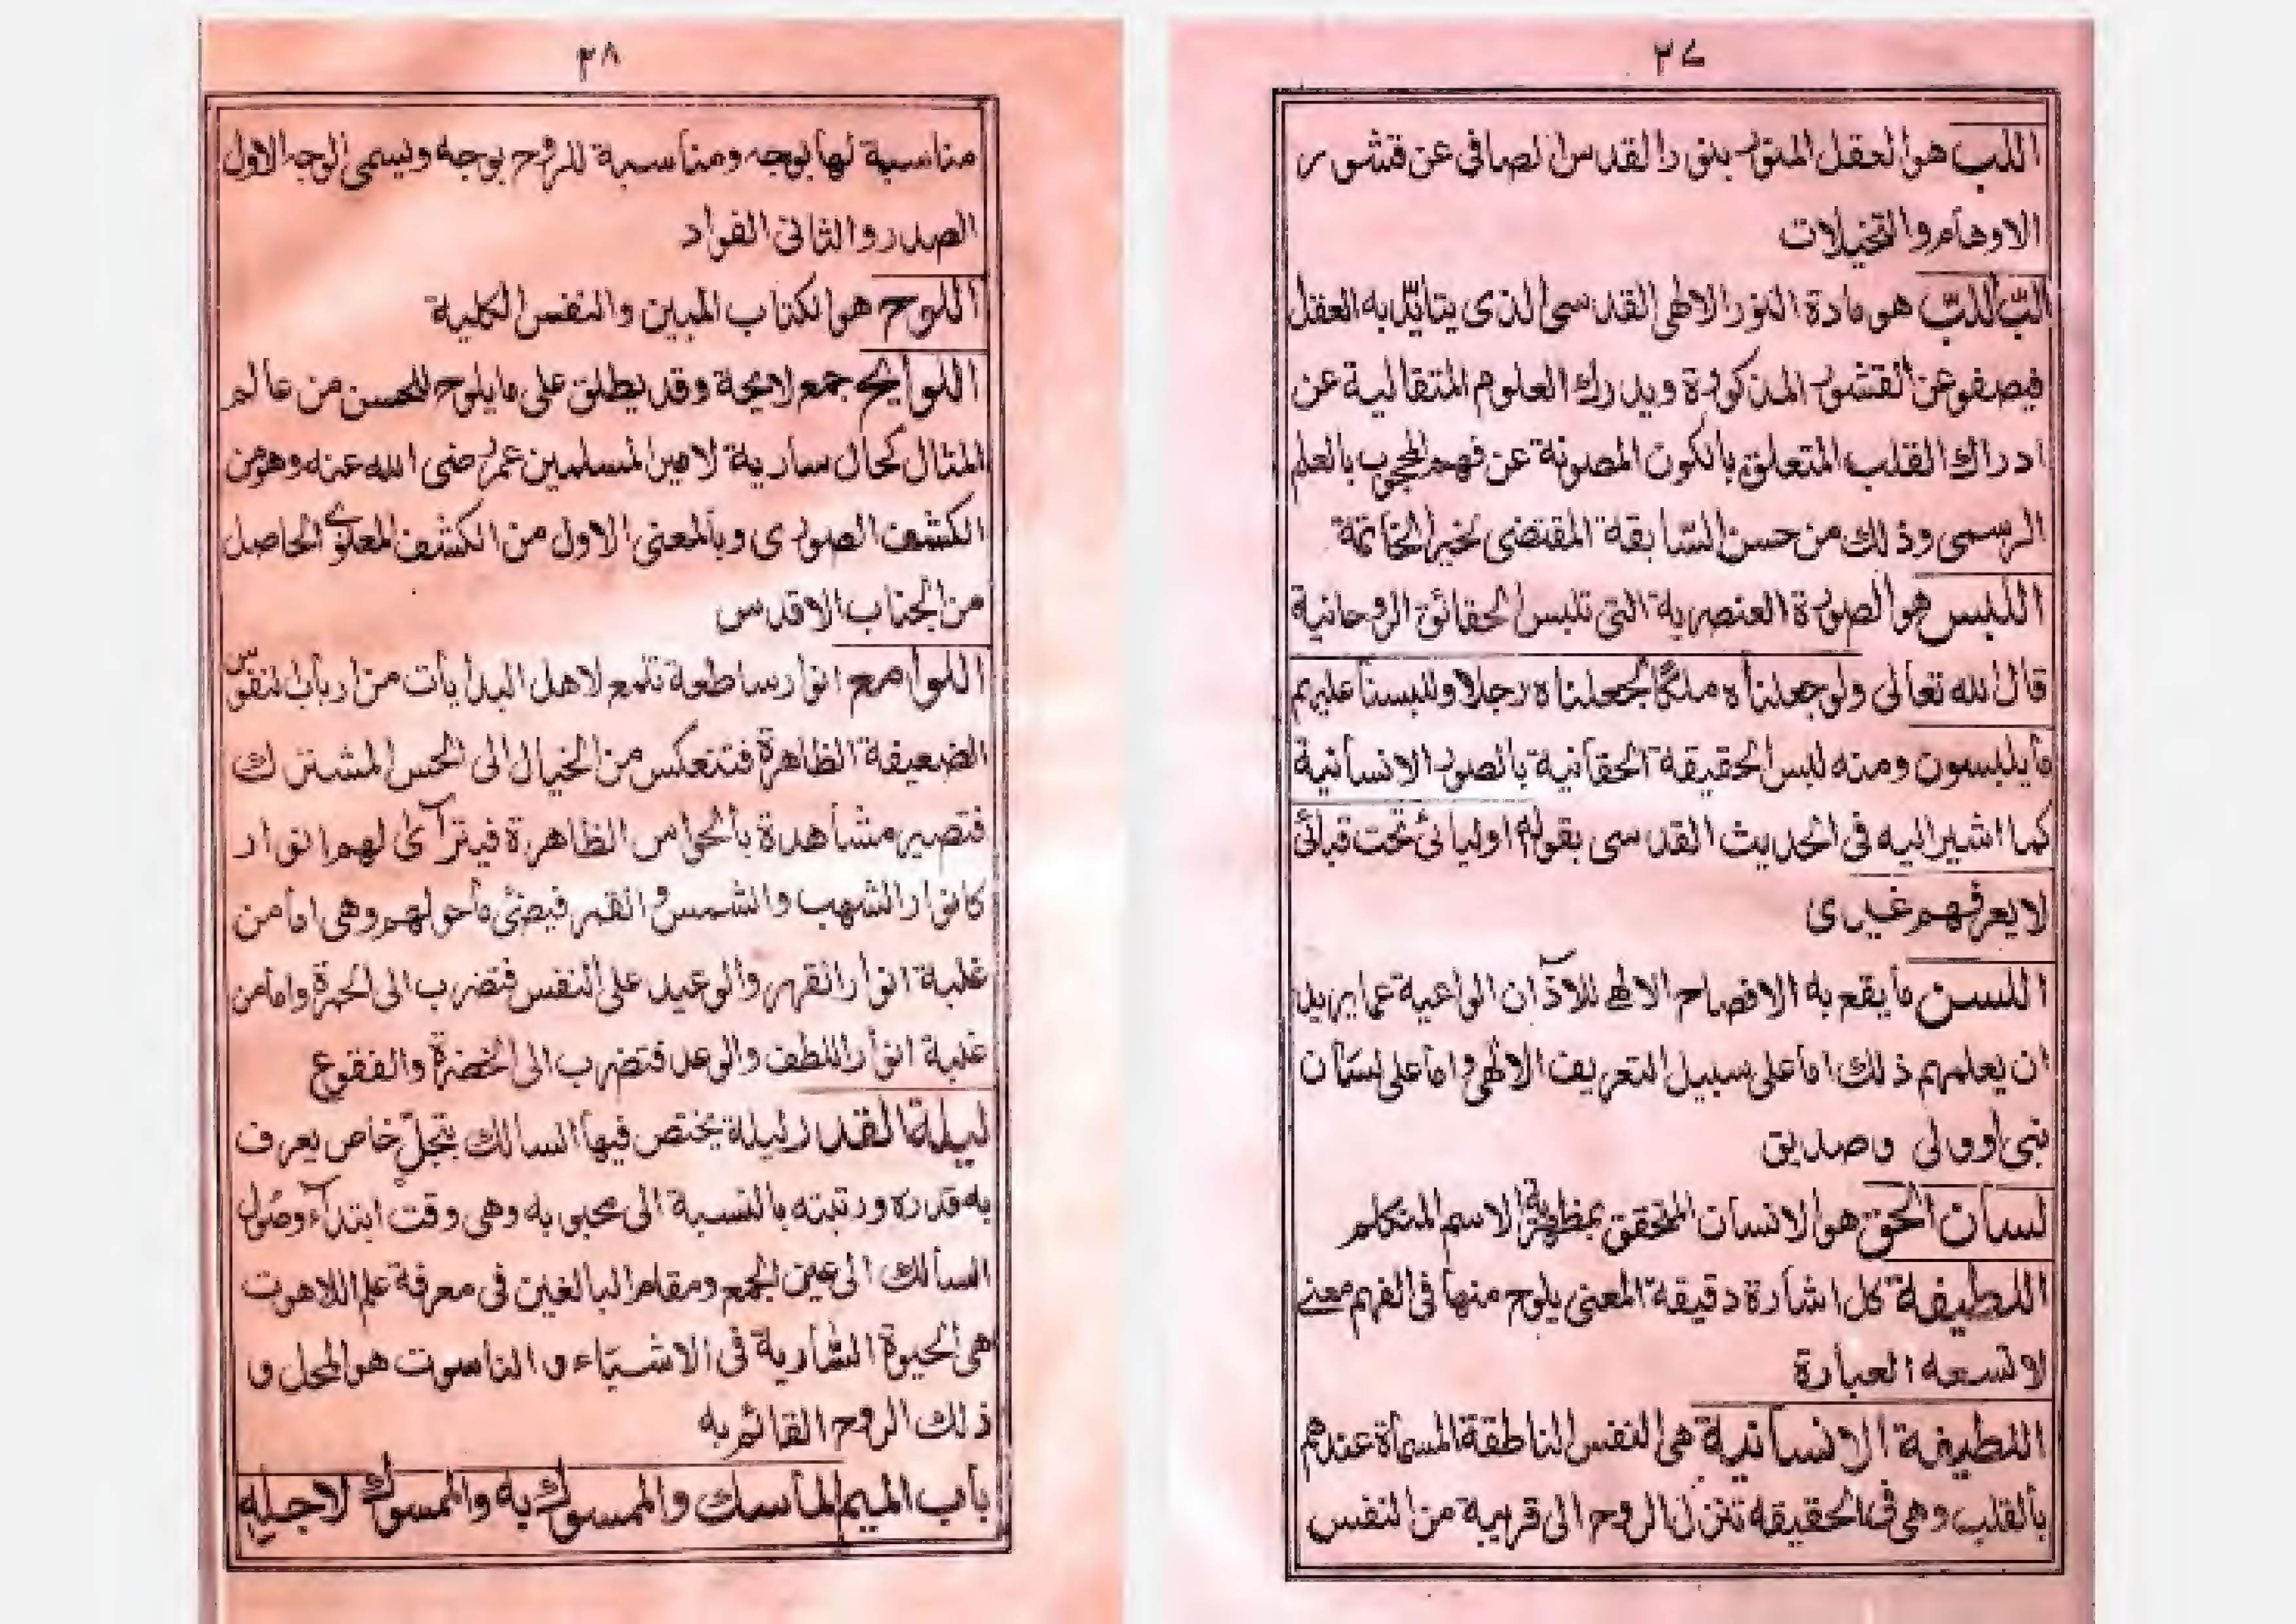 ٢٧
اللب هو العقل المنور بنور القدس الصافى عن قشور
الاوهام والتخيلات
لبّ اللبّ هو مادة النور الالهى القدسى الذى يتايّد به العقل
فيصفو عن القشور المذكورة ويدرك العلوم المتقالية عن
ادراك القلب المتعلق بالكون المصونة عن فهم المحجوب بالعلم
الرسمى وذلك من حسن السّابقة المقتضى لخير الخاتمة
اللبس هو الصورة العنصرية التى تلبس الحقائق الروحانية
قال الله تعالى ولو جعلناه ملكًا لجعلناه رجلا وللبسنا عليهم
ما يلبسون ومنه لبس الحقيقة الحقانية بالصور الانسانية
كما اشير اليه فى الحديث القدسى بقوله اوليائى تحت قبائى
لا يعرفهم غيرى
اللسن ما يقع به الافصاح الالهى للآذان الواعية عما يريد
ان يعلمهم ذلك اما على سبيل التعريف الالهى واما على لسان
نبى او ولى وصديق
لسان الحق هو الانسان المتحقق بمظهرية الاسم المتكلم
اللطيفة كل اشارة دقيقة المعنى يلوح منها فى الفهم معنى
لا تسعه العبارة
اللطيفة الانسانية هى النفس الناطقة المسماة عندهم
بالقلب وهى فى الحقيقة تنزل الروح الى قريبة من النفس
٢٨
مناسبة لها بوجه ومناسبة للروح بوجه ويسمى الوجه الاول
الصدر والثانى الفواد
اللوح هو الكتاب المبين والنفس الكلية
اللوايح جمع لايحة وقد يطلق على ما يلوح للحسن من عالم
المثال كحال سارية لامير المسلمين عمر رضى الله عنه وهو من
الكشف الصورى وبالمعنى الاول من الكشف المعنوى الحاصل
من الجناب الاقدس
اللوامع انوار ساطعة تلمع لاهل البدايات من ارباب النفوس
الضعيفة الظاهرة فتنعكس من الخيال الى الحس المشترك
فتصير مشاهدة بالحواس الظاهرة فيترآىٰ لهم انوار
كانوار الشهب والشمس والقمر فيضئ ما حولهم وهى اما من
غلبة انوار القهر والوعيد على النفس فتضرب الى الحمرة واما من
غلبة انوار اللطف والوعد فتضرب الى الخضرة والفقوع
ليلة القدر ليلة يختص فيها السالك بتجلّ خاص يعرف
به قدره ورتبته بالنسبة الى محبوبه وهى وقت ابتدآء وصول
السالك الى عين الجمع ومقام البالغين فى معرفة علم اللاهوت
هى الحيوة السّارية فى الاشياء و الناسوت هو المحل و
ذلك الروح القائم به
باب الميم الماسك والممسوك به والممسوك لاجله